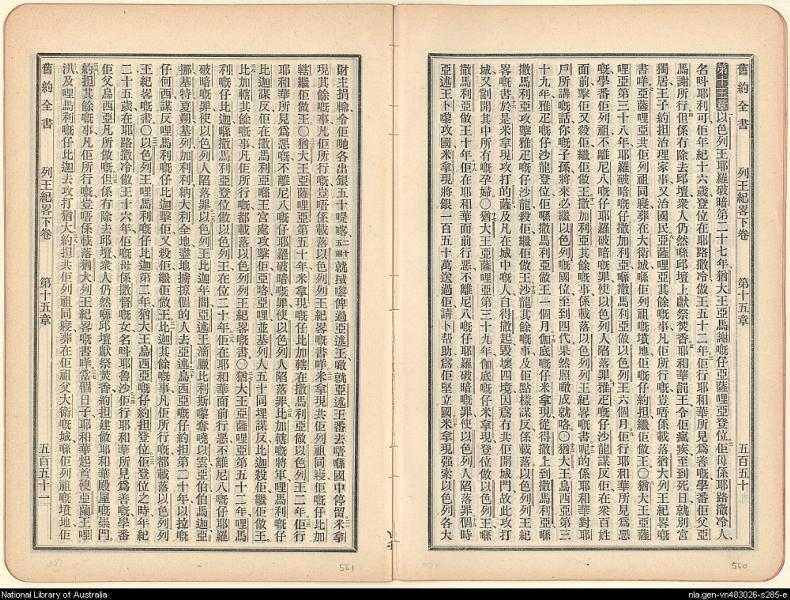 舊約全書 列王紀畧下卷 第十五章 五百五十
第十五章以色列王耶羅破暗第二十七年猶大王亞馬謝嘅仔亞薩哩亞登位佢母係耶路撒冷人
名呌耶利可佢年紀十六歲登位在耶路撒冷做王五十二年佢行耶和華所見爲善嘅學番佢父亞
馬謝所行但係有除去邱壇衆人仍然喺邱壇上獻祭焚香耶和華罰王令佢瘋疾至到死日就別宮
獨居王子約担治理家事又治國民亞薩哩亞其餘嘅事凡佢所行嘅豈唔係載落猶大列王紀畧嘅
書咩亞薩哩亞共佢列祖同寢葬在大衛城喺佢列祖嘅墳地佢嘅仔約担繼佢做王〇猶大王亞薩
哩亞第三十八年耶羅破暗嘅仔撒加利亞喺撒馬利亞做以色列王六個月佢行耶和華所見爲惡
嘅學番佢列祖不離尼八嘅仔耶羅破暗嘅罪使以色列人陷落罪雅疋嘅仔沙龍謀反佢在衆百姓
面前擊佢又殺佢繼佢做王撒加利亞其餘嘅事係載落以色列列王紀畧嘅書呢的係耶和華對耶
戶所講嘅話你嘅子孫將來必繼以色列嘅國位至到四代果然照噉成就咯〇猶大王烏西亞第三
十九年雅疋嘅仔沙龍登位佢喺撒馬利亞做王一個月伽底嘅仔米拿現從得撒上到撒馬利亞喺
撒馬利亞攻擊雅疋嘅仔沙龍殺佢繼佢做王沙龍其餘嘅事及佢點樣謀反係載落以色列列王紀
畧嘅書於是米拿現攻打的薩及凡在城中嘅人自得撒起毀壞四境因爲冇共佢開城門故此攻打
城又劏開其中所有嘅孕婦〇猶大王亞薩哩亞第三十九年伽底嘅仔米拿現登位做以色列王喺
撒馬利亞做王十年佢在耶和華面前行惡不離尼八嘅仔耶羅破暗嘅罪使以色列人陷落罪個時
亞述王卜嚟攻國米拿現將銀一百五十萬送過佢請卜帮助爲佢堅立國米拿現强索以色列各大
560
財主捐輸令佢哋各出銀五十
就嚟俾過亞述王噉就亞述王番去唔喺國中停留米拿
現其餘嘅事凡佢所行嘅豈唔係載落以色列列王紀畧嘅書咩米拿現共佢列祖同寢佢嘅仔比加
轄繼佢做王〇猶大王亞薩哩亞第五十年米拿現嘅仔比加轄在撒馬利亞做以色列王二年佢行
耶和華所見爲惡嘅不離尼八嘅仔耶羅破暗嘅罪使以色列人陷落罪比加轄嘅將軍哩馬利嘅仔
比迦謀反佢在撒馬利亞喺王宮處攻擊佢亞略哩並基列人五十同埋謀反比迦殺佢繼佢做王
比加轄其餘嘅事凡佢所行嘅都載落以色列列王紀畧嘅書〇猶大王亞薩哩亞第五十二年哩馬
利嘅仔比迦喺撒馬利亞登位做以色列王在位二十年佢在耶和華面前行惡不離尼八嘅仔耶羅
破暗嘅罪使以色列人陷落罪以色列王比迦年間亞述王
嚟奪
挪基特夏朔基列加利利納大利全地盡地擄掠個的人去亞述烏西亞嘅仔約担第二十年以拉嘅
仔何西謀反哩馬利嘅仔比迦擊佢又殺佢繼佢做王比迦其餘嘅事凡佢所行嘅都載落以色列列
王紀畧嘅書〇以色列王哩馬利嘅仔比迦第二年猶大王烏西亞嘅仔約担登位佢登位之時年紀
二十五歲在耶路撒冷做王十六年佢嘅母係撒督嘅女名呌耶魯沙佢行耶和華所見爲善嘅學番
佢父烏西亞凡佢所做嘅但係冇除去邱壇衆人仍然喺邱壇獻祭焚香約担建做耶和華殿屋嘅崇門
約担其餘嘅事凡佢所行嘅豈唔係載落猶大列王紀畧嘅書咩當個日子耶和華起首使亞蘭王哩
汛及哩馬利嘅仔比迦去攻打猶大約担共佢列祖同寢葬在佢祖父大衛嘅城喺佢列祖嘅墳地佢
舊約全書 列王紀畧下卷 第十五章 五百五十一
561
National Library of Australia
nla.gen-vn483026-s285-e